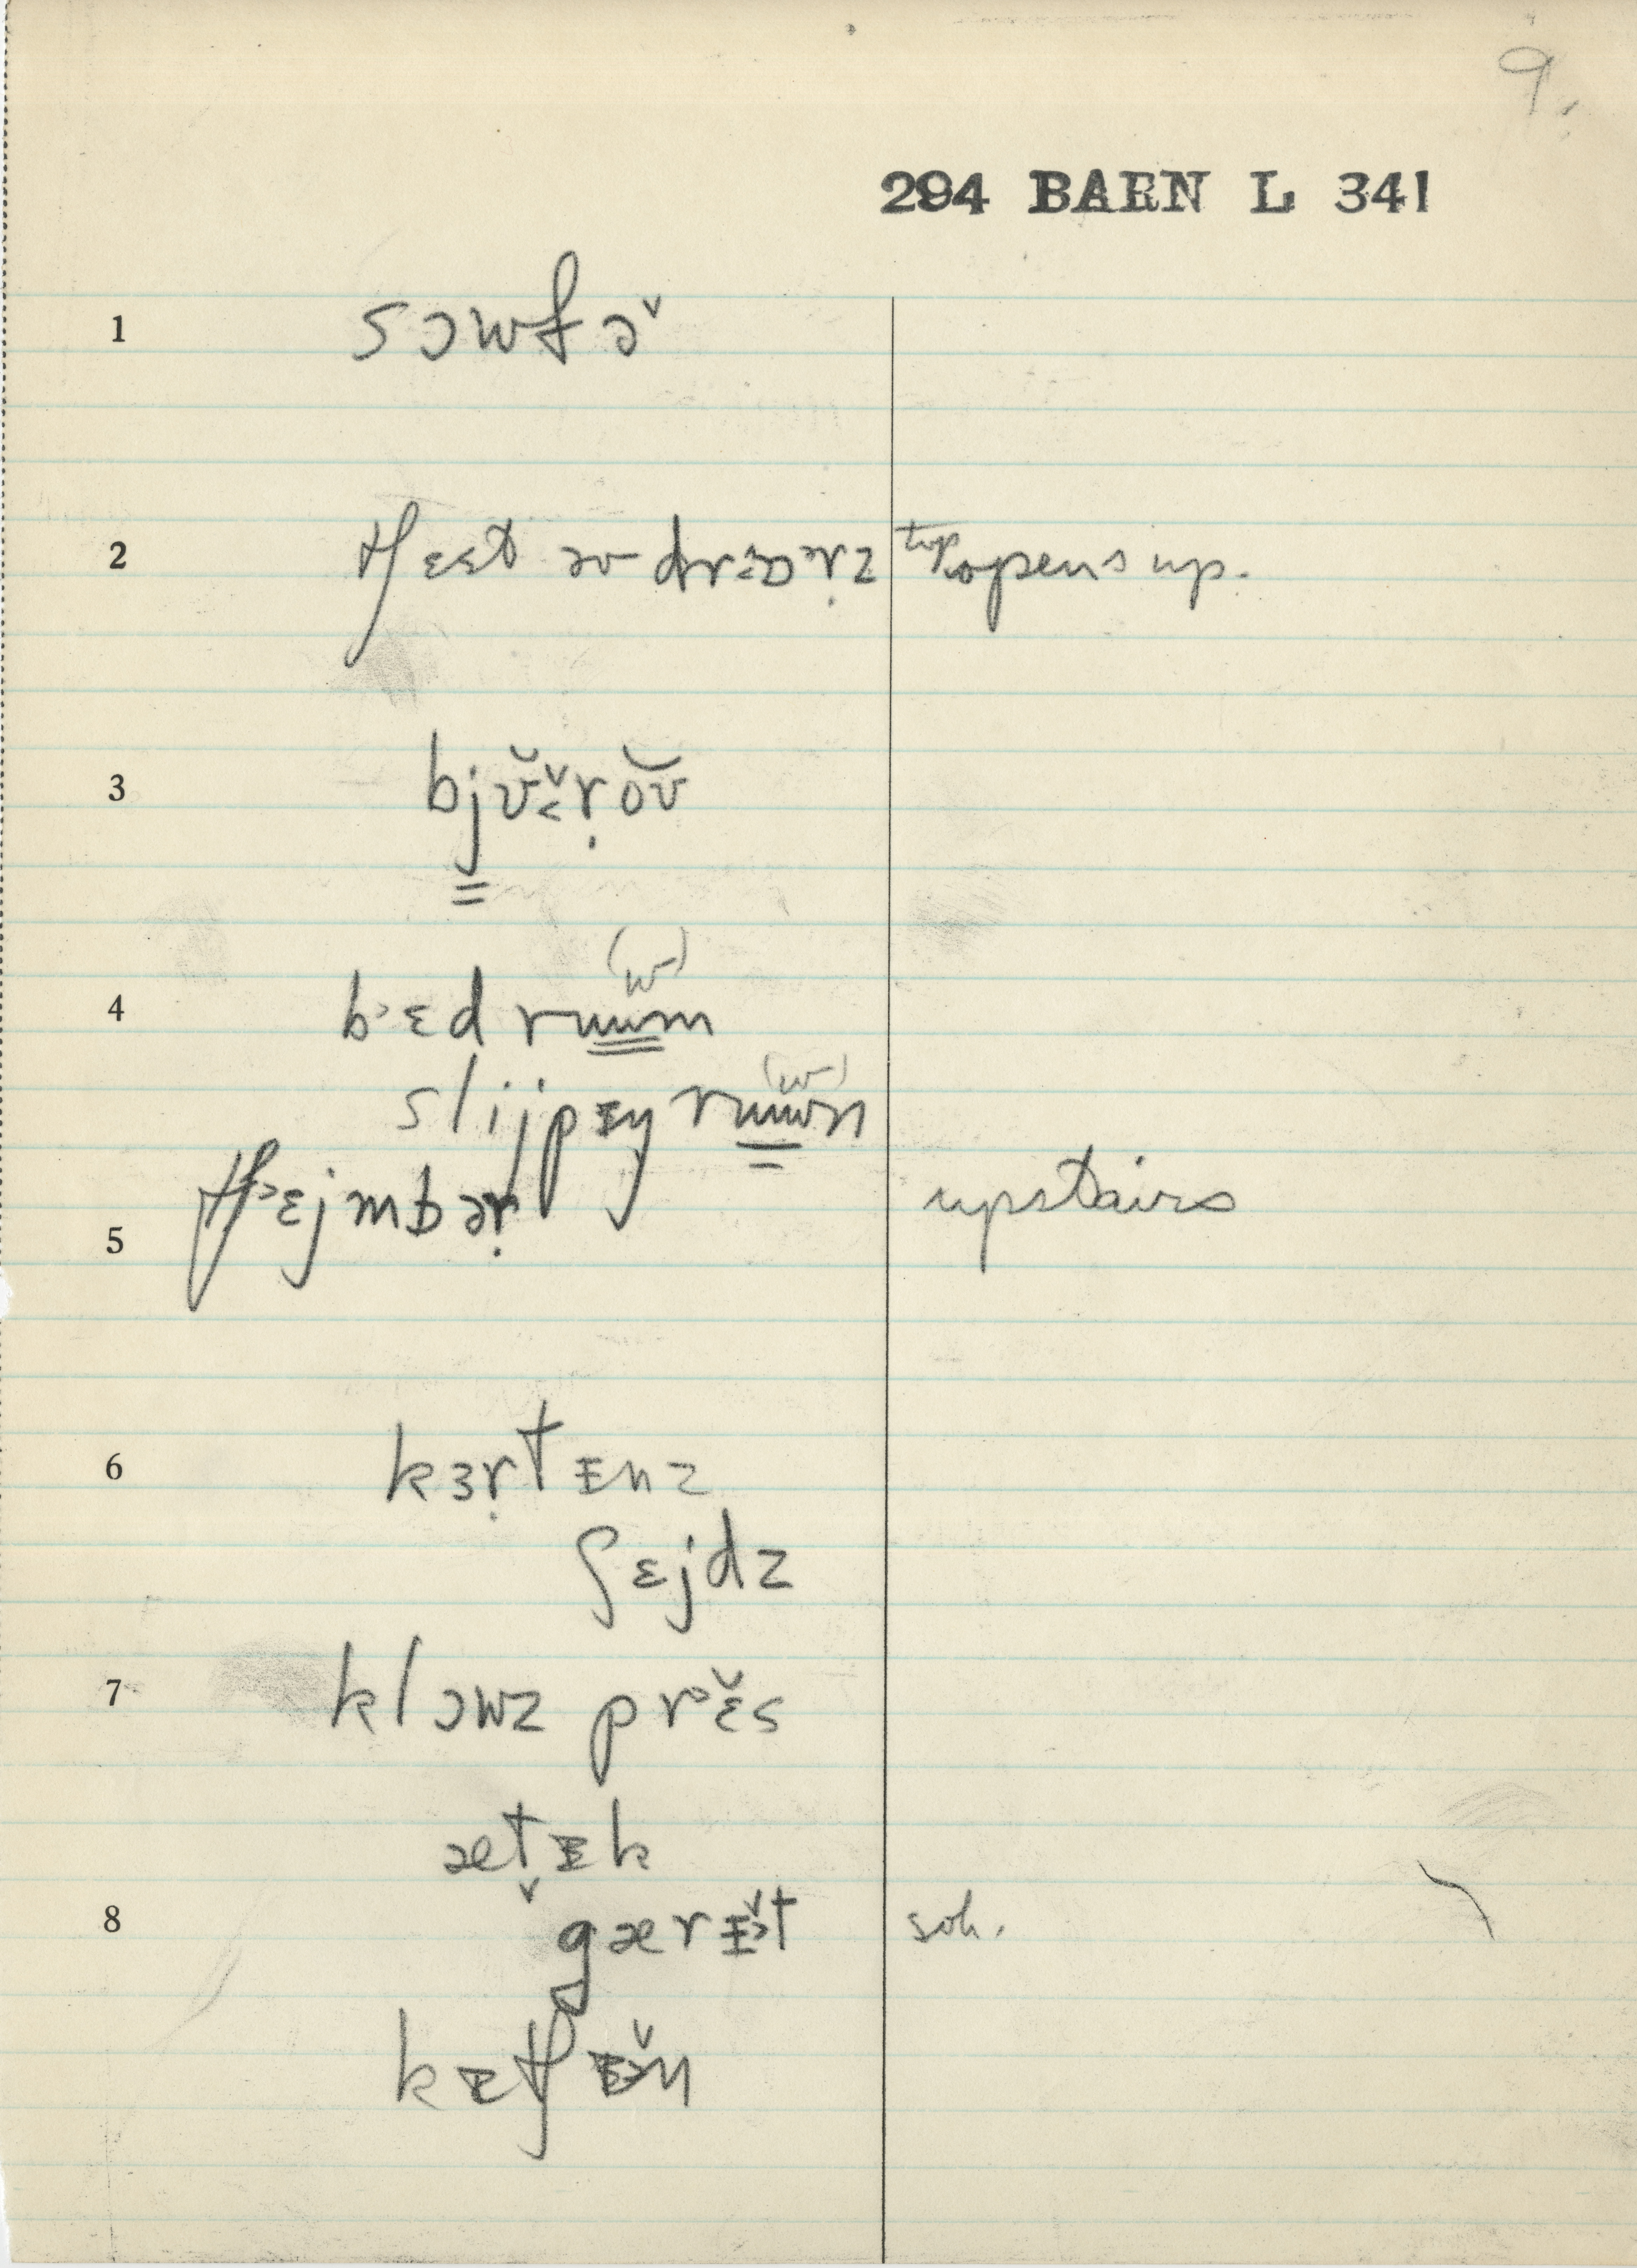 9.
294 BARN L 341
1 sɔwfə˅
2 tʃɛst əv drɔərz top opens up.
3 bjʊ̆˅rŏʊ̆
(w)
4 b˃ɛd ruwm
(w)
slijpɪŋ ruwm
5 tʃ˃ɛjmbəṛ upstairs
6 kɜṛtᵻnz
ʃɛjdz
7 klɔwz pr˃ɛ̌s
æt̬ᵻk
8 gærᵻ̌t soh.
kᵻtʃᵻ̌n